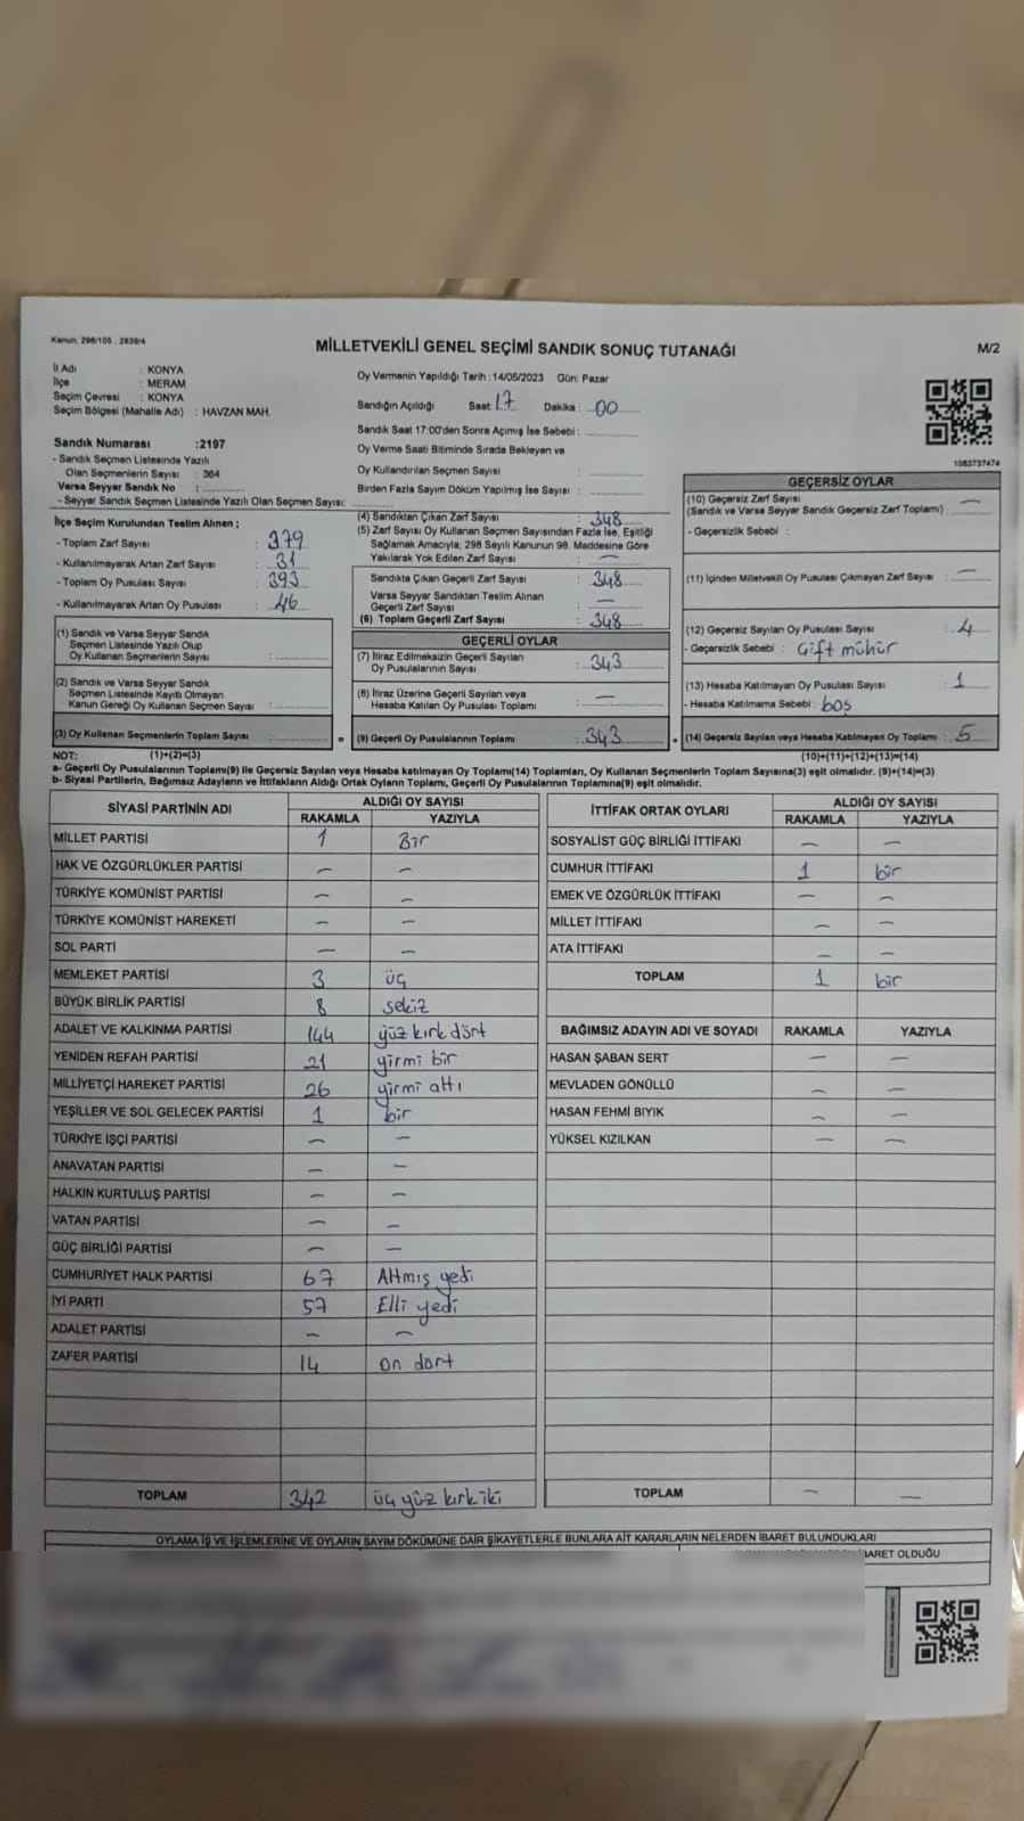 Kanun, 298/105 , 2839/4
MİLLETVEKİLİ GENEL SEÇİMİ SANDIK SONUÇ TUTANAĞI
M/2
İl Adı : KONYA
İlçe : MERAM
Seçim Çevresi : KONYA
Seçim Bölgesi (Mahalle Adı) : HAVZAN MAH.
Sandık Numarası :2197
- Sandık Seçmen Listesinde Yazılı
Olan Seçmenlerin Sayısı : 364
Varsa Seyyar Sandık No :
- Seyyar Sandık Seçmen Listesinde Yazılı Olan Seçmen Sayısı:
Oy Vermenin Yapıldığı Tarih :14/05/2023 Gün: Pazar
Sandığın Açıldığı Saat 17 Dakika : 00
Sandık Saat 17:00'den Sonra Açmış İse Sebebi :
Oy Verme Saati Bitiminde Sırada Bekleyen ve
Oy Kullandırılan Seçmen Sayısı :
Birden Fazla Sayım Döküm Yapılmış İse Sayısı :
1083737474
İlçe Seçim Kurulundan Teslim Alınan ;
- Toplam Zarf Sayısı : 379
- Kullanılmayarak Artan Zarf Sayısı : 31
- Toplam Oy Pusulası Sayısı : 393
- Kullanılmayarak Artan Oy Pusulası : 46
(1) Sandık ve Varsa Seyyar Sandık
Seçmen Listesinde Yazılı Olup
Oy Kullanan Seçmenlerin Sayısı :
(2) Sandık ve Varsa Seyyar Sandık
Seçmen Listesinde Kayıtlı Olmayan
Kanun Gereği Oy Kullanan Seçmen Sayısı :
(3) Oy Kullanan Seçmenlerin Toplam Sayısı :
(4) Sandıktan Çıkan Zarf Sayısı : 348
(5) Zarf Sayısı Oy Kullanan Seçmen Sayısından Fazla İse, Eşitliği
Sağlamak Amacıyla, 298 Sayılı Kanunun 98. Maddesine Göre
Yakılarak Yok Edilen Zarf Sayısı : —
Sandıkta Çıkan Geçerli Zarf Sayısı : 348
Varsa Seyyar Sandıktan Teslim Alınan
Geçerli Zarf Sayısı : —
(6) Toplam Geçerli Zarf Sayısı : 348
GEÇERLİ OYLAR
(7) İtiraz Edilmeksizin Geçerli Sayılan
Oy Pusulalarının Sayısı : 343
(8) İtiraz Üzerine Geçerli Sayılan veya
Hesaba Katılan Oy Pusulası Toplamı : —
= (9) Geçerli Oy Pusulalarının Toplamı : 343
GEÇERSİZ OYLAR
(10) Geçersiz Zarf Sayısı : —
(Sandık ve Varsa Seyyar Sandık Geçersiz Zarf Toplamı)
- Geçersizlik Sebebi :
(11) İçinden Milletvekili Oy Pusulası Çıkmayan Zarf Sayısı : —
(12) Geçersiz Sayılan Oy Pusulası Sayısı : 4
- Geçersizlik Sebebi : Çift mühür
(13) Hesaba Katılmayan Oy Pusulası Sayısı : 1
- Hesaba Katılmama Sebebi: boş
+ (14) Geçersiz Sayılan veya Hesaba Katılmayan Oy Toplamı : 5
NOT: (1)+(2)=(3) (10)+(11)+(12)+(13)=(14)
a- Geçerli Oy Pusulalarının Toplamı(9) ile Geçersiz Sayılan veya Hesaba katılmayan Oy Toplamı(14) Toplamları, Oy Kullanan Seçmenlerin Toplam Sayısına(3) eşit olmalıdır. (9)+(14)=(3)
b- Siyasi Partilerin, Bağımsız Adayların ve İttifakların Aldığı Ortak Oyların Toplamı, Geçerli Oy Pusulalarının Toplamına(9) eşit olmalıdır.
SİYASİ PARTİNİN ADI ALDIĞI OY SAYISI
RAKAMLA YAZIYLA
MİLLET PARTİSİ 1 Bir
HAK VE ÖZGÜRLÜKLER PARTİSİ — —
TÜRKİYE KOMÜNİST PARTİSİ — —
TÜRKİYE KOMÜNİST HAREKETİ — —
SOL PARTİ — —
MEMLEKET PARTİSİ 3 üç
BÜYÜK BİRLİK PARTİSİ 8 sekiz
ADALET VE KALKINMA PARTİSİ 144 yüz kırk dört
YENİDEN REFAH PARTİSİ 21 yirmi bir
MİLLİYETÇİ HAREKET PARTİSİ 26 yirmi altı
YEŞİLLER VE SOL GELECEK PARTİSİ 1 bir
TÜRKİYE İŞÇİ PARTİSİ — —
ANAVATAN PARTİSİ — —
HALKIN KURTULUŞ PARTİSİ — —
VATAN PARTİSİ — —
GÜÇ BİRLİĞİ PARTİSİ — —
CUMHURİYET HALK PARTİSİ 67 Altmış yedi
İYİ PARTİ 57 Elli yedi
ADALET PARTİSİ — —
ZAFER PARTİSİ 14 on dört
TOPLAM 342 üç yüz kırk iki
İTTİFAK ORTAK OYLARI ALDIĞI OY SAYISI
RAKAMLA YAZIYLA
SOSYALİST GÜÇ BİRLİĞİ İTTİFAKI — —
CUMHUR İTTİFAKI 1 bir
EMEK VE ÖZGÜRLÜK İTTİFAKI — —
MİLLET İTTİFAKI — —
ATA İTTİFAKI — —
TOPLAM 1 bir
BAĞIMSIZ ADAYIN ADI VE SOYADI RAKAMLA YAZIYLA
HASAN ŞABAN SERT — —
MEVLADEN GÖNÜLLÜ — —
HASAN FEHMİ BIYIK — —
YÜKSEL KIZILKAN — —
TOPLAM — —
OYLAMA İŞ VE İŞLEMLERİNE VE OYLARIN SAYIM DÖKÜMÜNE DAİR ŞİKAYETLERLE BUNLARA AİT KARARLARIN NELERDEN İBARET BULUNDUKLARI
OLDUĞU